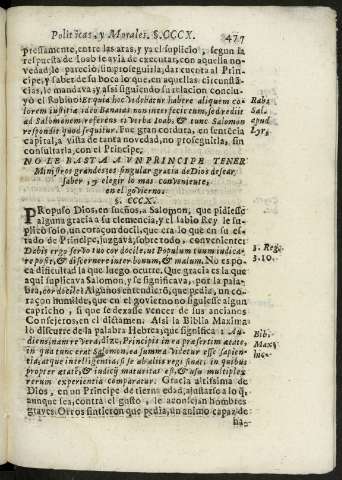 Politicas, y Morales. §. CCCX. 477
pressamente, entre las aras, y ya el suplicio, segun la
respuesta de Ioab le avia de executar, con aquella no-
vedad, le pareciò, sin proseguirla, dar cuenta al Prin-
cipe, y saber de su boca lo que, en aquellas circunstã-
cias, le mandava, y assi siguiendo su relacion conclu-
yò el Rabino: Et quia hoc videbatur habere aliquem co-
lorem iustitiæ ideo Banaias non interfecit eum, sed rediit
ad Salomonem referens ei Verba Ioab, & tunc Salomon
respondit quod sequitur. Fue gran cordura, en sentẽcia
capital, à vista de tanta novedad, no proseguirla, sin
consultarla, con el Principe.
Rab.
Sal.
apud
Lyr.
NO LE BASTA A VN PRINCIPE TENER
Ministros grandes: es singular gracia de Dios desear,
saber, y elegir lo mas conveniente,
en el govierno.
§. CCCX.
PRopuso Dios, en sueños, a Salomon, que pidiesse
alguna gracia a su clemencia, y el sabio Rey le su-
plicò solo, un coraçon docil, que era lo que en su es-
tado de Principe, juzgava, sobre todo, conveniente:
Dabis ergo servo tuo cor docile, ut Populum tuum iudica-
re possit, & discernere inter bonum, & malum. No es po-
ca dificultad la que luego ocurre. Que gracia es la que
aqui suplicava Salomon, y se significava, por la pala-
bra, cor docile? Algunos entendieron, que pedia, un co-
raçon humilde, que en el govierno no siguiesse algun
capricho, si que se dexasse vencer de sus ancianos
Consejeros, en el dictamen. Assi la Biblia Maxima
lo discurre de la palabra Hebrea, que significa: Au-
diens, nam re Vera, dize, Principis in ea præsertim ætate,
in qua tunc erat Salomon, ea summa Videtur esse sapien-
tia, atque intelligentia, si se ab aliis regi sinat, in quibus
propter ætatẽ, & iudicij maturitas est, & usu multiplex
rerum experientia comparatur. Gracia altissima de
Dios, en un Principe de tierna edad, ajustarse a lo q̃,
aunque sea, contra el gusto, le aconsejan hombres
graves. Otros sintieron que pedia, un animo capaz de
3. Reg.
3. 10.
Bib.
Max.
hic.
ha-